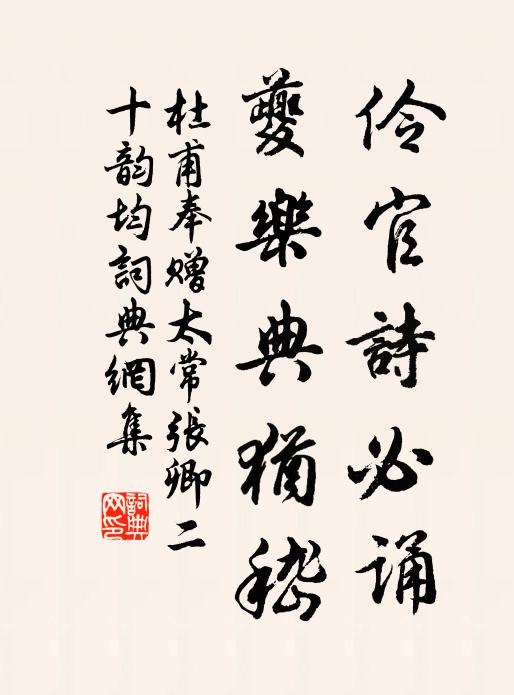 伶官詩必誦
夔樂典猶稽
杜甫奉贈太常張卿二
十韵均詞典網集
詞典
网印